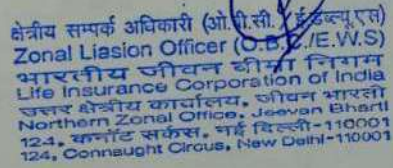 क्षेत्रीय सम्पर्क अधिकारी (ओ.बी.सी. / ई.डब्ल्यू.एस)
Zonal Liasion Officer (O.B.C./E.W.S)
भारतीय जीवन बीमा निगम
Life Insurance Corporation of India
उत्तर क्षेत्रीय कार्यालय, जीवन भारती
Northern Zonal Office, Jeevan Bharti
124, कनॉट सर्कस, नई दिल्ली-110001
124, Connaught Circus, New Delhi-110001